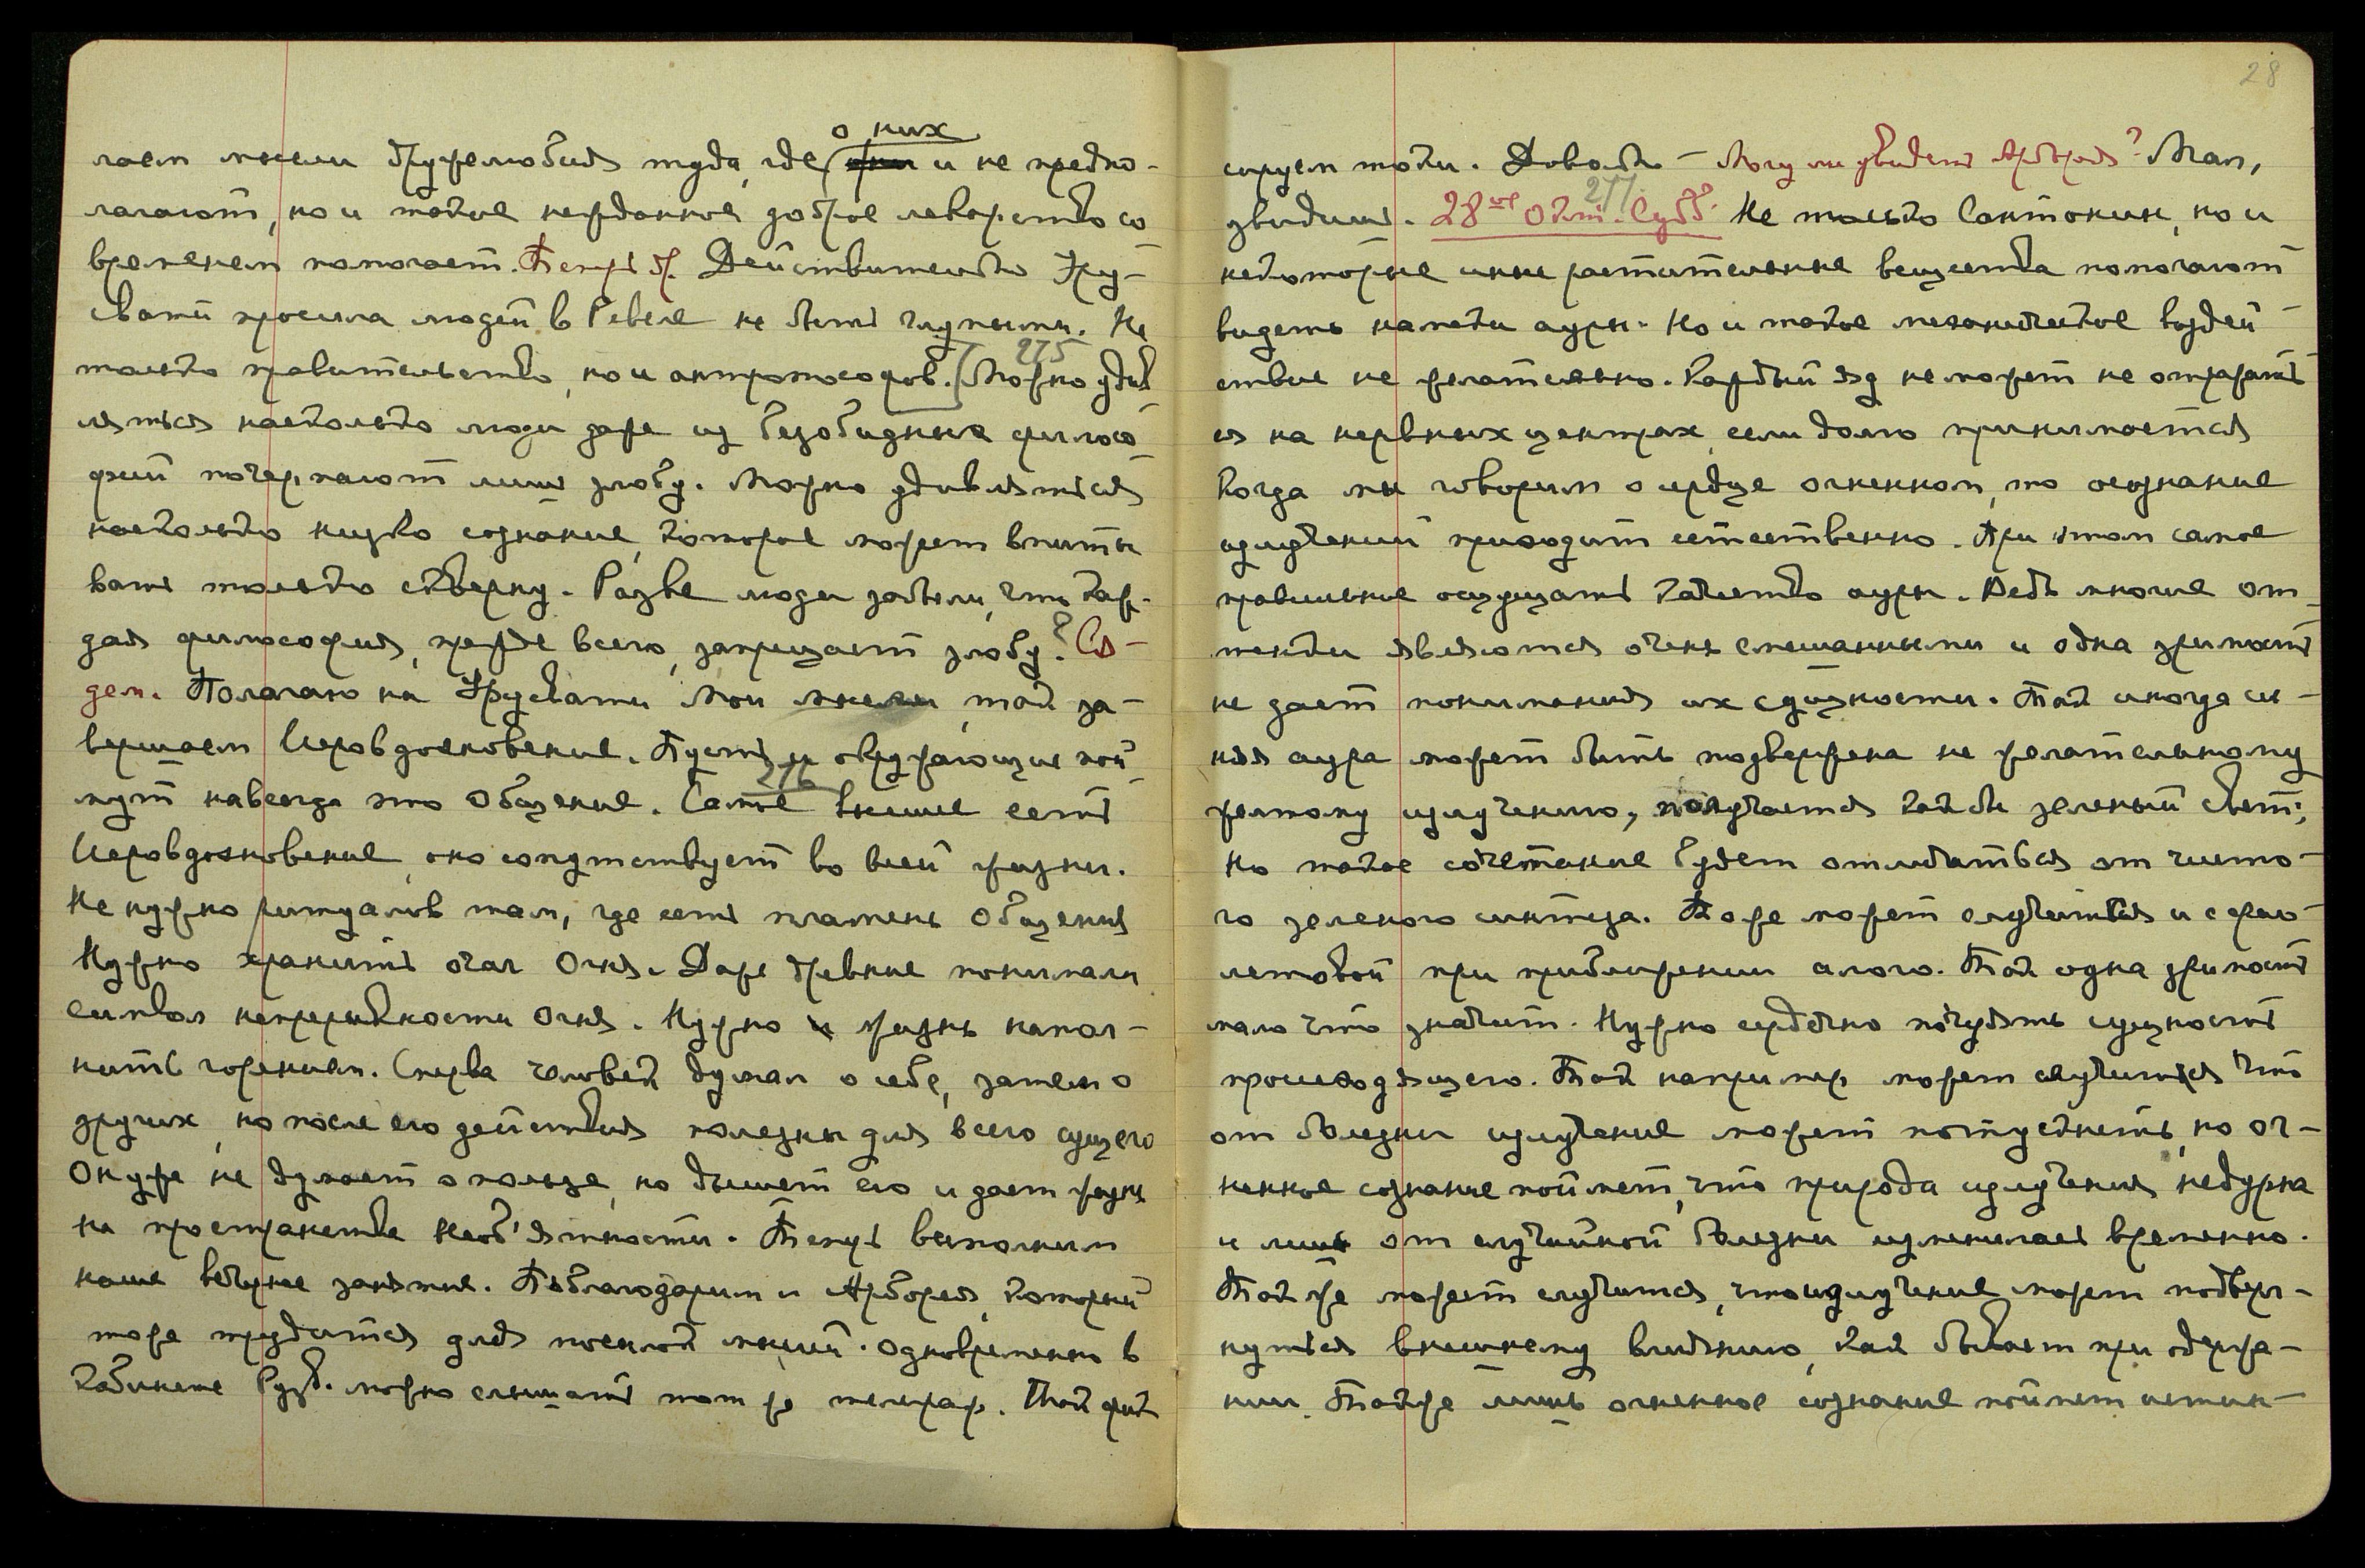 о них
лаем мысли дружелюбия туда, где они и не предпо-
лагают, но и такое нежданное доброе лекарство со
временем помогает. Теперь др. Действительно Уру-
свати просила людей в Ревеле не быть глупыми. Не
только правительство, но и антропософов. 275 Можно удив
ляться насколько люди даже из безобидных филосо
фий почерпают лишь злобу. Можно удивляться
насколько низко сознание, которое может впиты
вать только скверну. Разве люди забыли, что каж-
дая философия, прежде всего, запрещает злобу? Ся-
дем. Полагаю на Урусвати Мои мысли, так за-
вершаем Иеровдохновение. Пусть и окружающие пой
мут навсегда это Общение. 276 Самое высшее есть
Иеровдохновение, оно сопутствует во всей жизни.
Не нужно ритуалов там, где есть пламень Общения
Нужно хранить очаг Огня. Даже древние понимали
символ непрерывности Огня. Нужно и жизнь напол-
нить горением. Сперва человек думал о себе, затем о
других, но после его действия полезны для всего сущего
Он уже не думает о пользе, но дышет ею и дает жизнь
на пространства Необ'ятности. Теперь выполним
наше вечерне занятие. Поблагодарим и Арборея, который
тоже трудится для посылок мыслей. Одновременно в
Кабинете Рузв. можно слышать тот же телеграф. Так фик
28
сируем токи. Довольно - Могу ли увидеть Арборея? Мал,
увидишь. 28ое Окт. Субб. 277 Не только Сантонин, но и
некоторые иные растительные вещества помогают
видеть налеты ауры. Но и такое механическое воздей
ствие не желательно. Каждый яд не может не отражать
ся на нервных центрах, если долго принимается
Когда мы говорим о сердце огненном, то осознание
излучений приходит естественно. При этом самое
правильное ощущать качество ауры. Ведь многие от
тенки являются очень смешанными и одна зримость
не дает понимания их сущности. Так иногда си-
няя аура может быть подвержена не желательному
желтому излучению, получается как бы зеленый свет;
но такое сочетание будет отличаться от чисто-
го зеленого синтеза. Тоже может случиться и с фио-
летовой при приближении алого. Так одна зримость
мало что значит. Нужно сердечно почуять сущность
происходящего. Так например может случиться что
от болезни излучение может потускнеть, но ог-
ненное сознание поймет, что природа излучения недурна
и лишь от случайной болезни изменилась временно.
Так же может случиться, что излучение может подверг-
нуться внешнему влиянию, как бывает при одержа-
нии. Также лишь огненное сознание поймет истин-